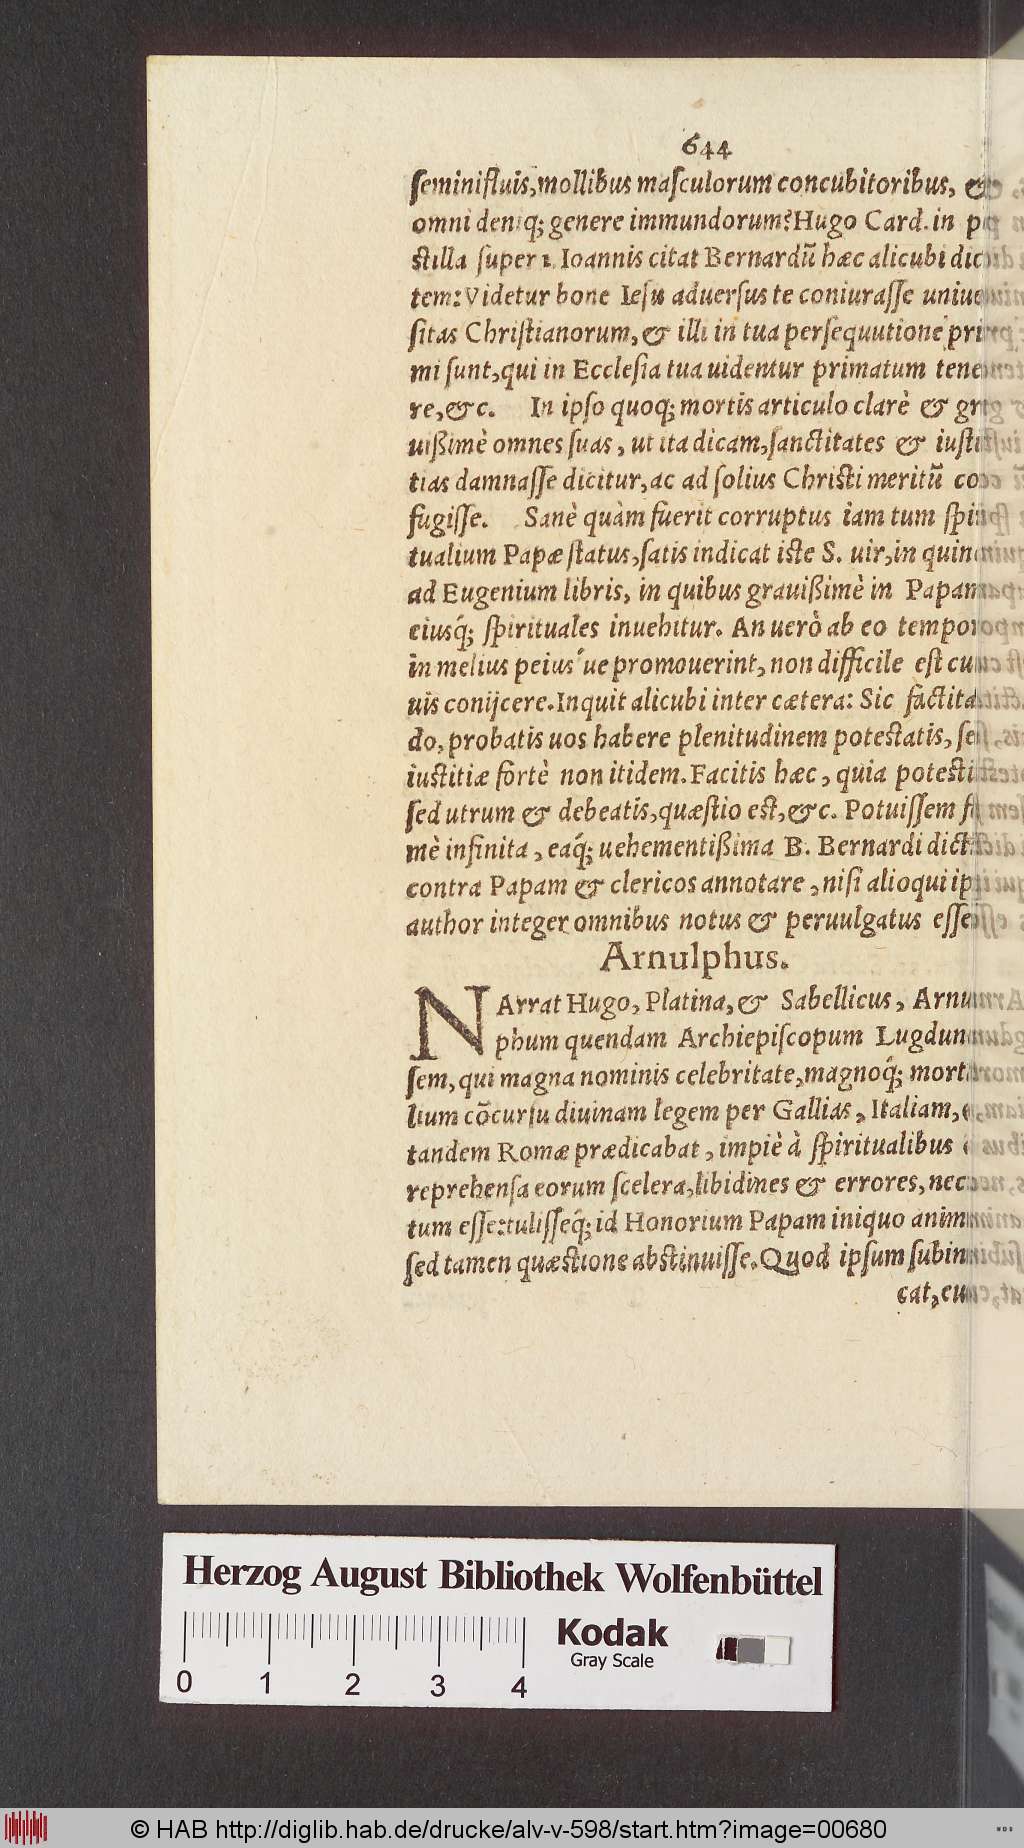 644
ſeminifluis, mollibus maſculorum concubitoribus, &
omni deniq; genere immundorum? Hugo Card. in
ſtilla ſuper 1. Ioannis citat Bernardũ hæc alicubi
tem: Videtur bone Ieſu aduerſus te coniuraſſe
ſitas Chriſtianorum, & illi in tua perſequutione
mi ſunt, qui in Eccleſia tua uidentur primatum
re, &c. In ipſo quoq; mortis articulo clarè &
uißimè omnes ſuas, ut ita dicam, ſanctitates &
tias damnaſſe dicitur, ac ad ſolius Chriſti meritũ
fugiſſe. Sanè quàm fuerit corruptus iam tum
tualium Papæ ſtatus, ſatis indicat iſte S. uir, in
ad Eugenium libris, in quibus grauißimè in Papam
eiusq́; ſpirituales inuehitur. An uerò ab eo
in melius peius´ue promouerint, non difficile eſt
uis conijcere. Inquit alicubi inter cætera: Sic
do, probatis uos habere plenitudinem poteſtatis,
iuſtitiæ fortè non itidem. Facitis hæc, quia
ſed utrum & debeatis, quæſtio eſt, &c. Potuiſſem
mè infinita, eaq́; uehementißima B. Bernardi
contra Papam & clericos annotare, niſi alioqui
author integer omnibus notus & peruulgatus
Arnulphus.
NArrat Hugo, Platina, & Sabellicus,
phum quendam Archiepiſcopum
ſem, qui magna nominis celebritate, magnoq́;
lium cõcurſu diuinam legem per Gallias, Italiam,
tandem Romæ prædicabat, impiè à ſpiritualibus
reprehenſa eorum ſcelera, libidines & errores,
tum eſſe: tuliſſeq́; id Honorium Papam iniquo
ſed tamen quæſtione abſtinuiſſe. Quod ipſum
cat,
Herzog August Bibliothek Wolfenbüttel
Kodak
Gray Scale
0 1 2 3 4
© HAB http://diglib.hab.de/drucke/alv-v-598/start.htm?image=00680